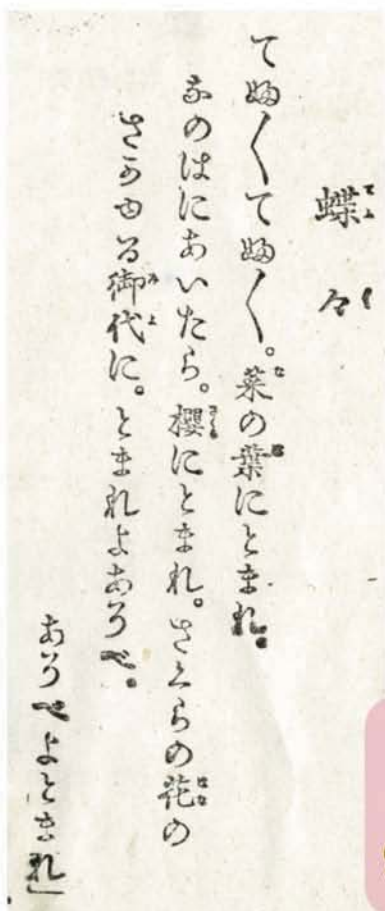 蝶々
てふ〱てふ〱。菜の葉にとまれ。
なのはにあいたら。櫻にとまれ。さくらの花の
さかゆる御代に。とまれよあそべ。
あそべよとまれ」